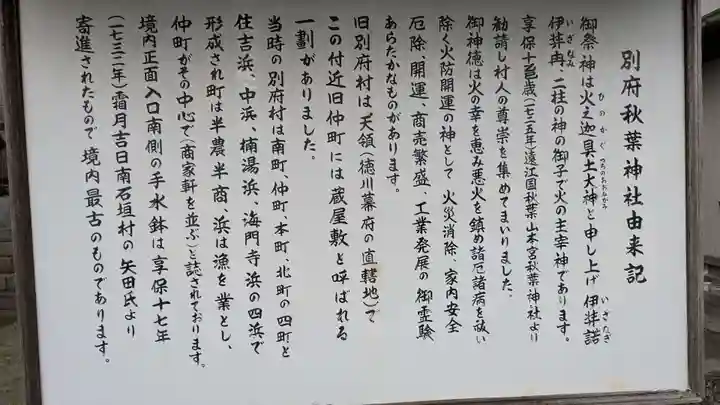 別府秋葉神社由来記
御祭神は火之迦具土大神と申し上げ 伊弉諾
ひのかぐつちのおおかみ
いざなぎ
伊弉冉、二柱の神の御子で火の主宰神であります。
いざなみ
享保十巳歳(一七二五年)遠江国秋葉山本宮秋葉神社より
勧請し村人の尊崇を集めてまいりました、
御神徳は火の幸を恵み悪火を鎮め諸厄諸病を祓い
除く火防開運の神として 火災消除、家内安全
厄除、開運、商売繁盛、工業発展の 御霊験
あらたかなものがあります。
旧別府村は天領(徳川幕府の直轄地)で
この付近旧仲町には蔵屋敷と呼ばれる
一劃がありました。
当時の別府村は南町、仲町、本町、北町の四町と
住吉浜、中浜、楠湯浜、海門寺浜の四浜で
形成され町は半農半商、浜は漁を業とし、
仲町がその中心で(商家軒を並ぶ)と誌されております。
境内正面入口南側の手水鉢は享保十七年
(一七三二年)霜月吉日南石垣村の矢田氏より
寄進されたもので 境内最古のものであります。